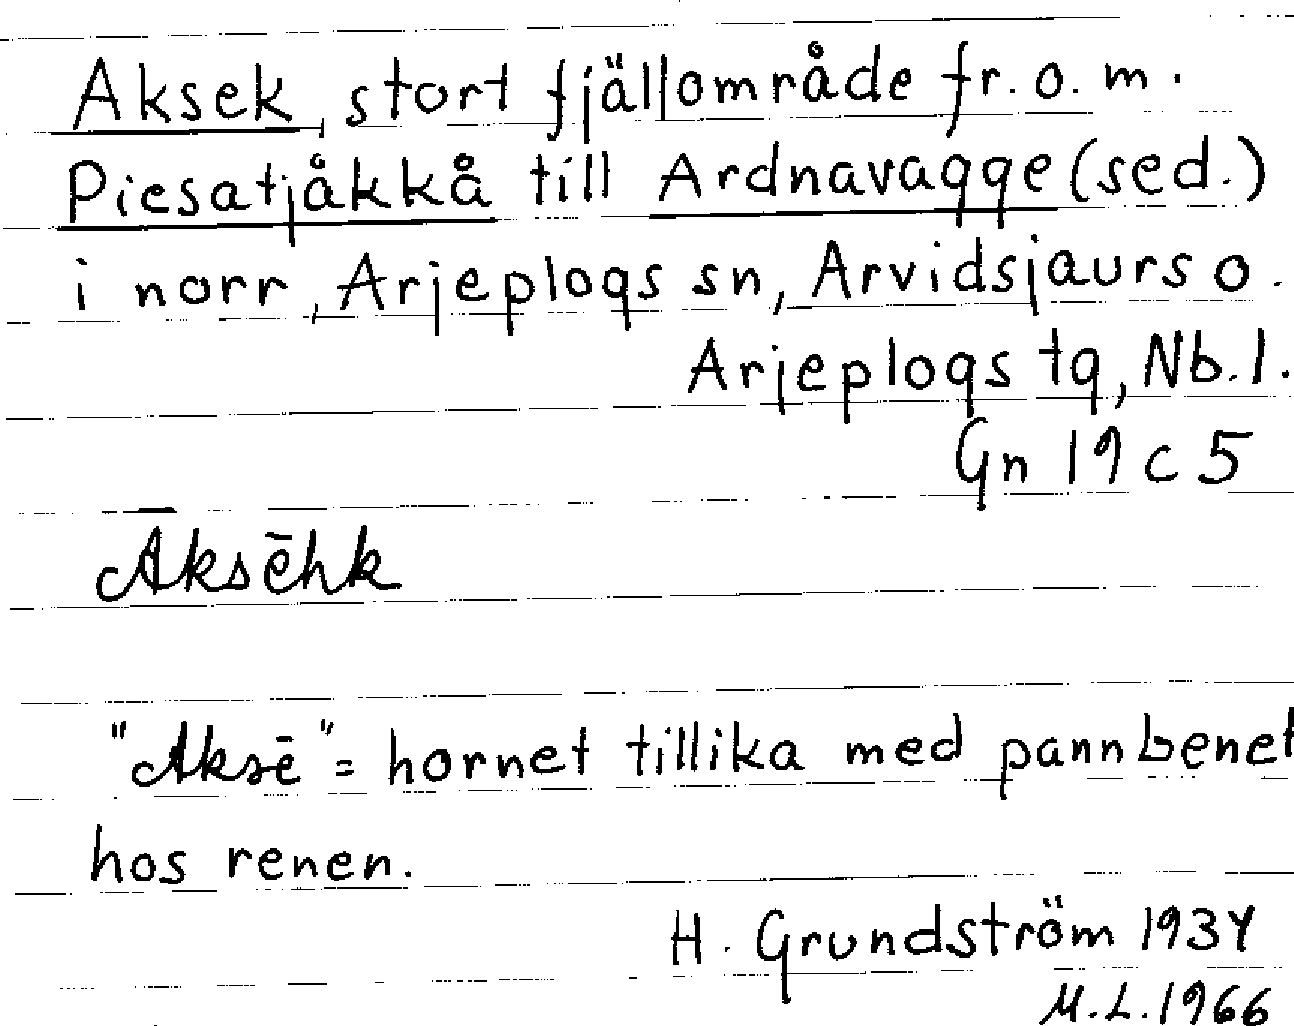 Aksek, stort fjällområde fr.o.m.
Piesatjåkkå till Ardnavagge (sed.)
i norr, Arjeplogs sn, Arvidsjaurs o.
Arjeplogs tg, Nb.l.
Gn 19 c 5
Āksēhk
"Aksē" = hornet tillika med pannbenet
hos renen.
H. Grundström 1934
M.L. 1966